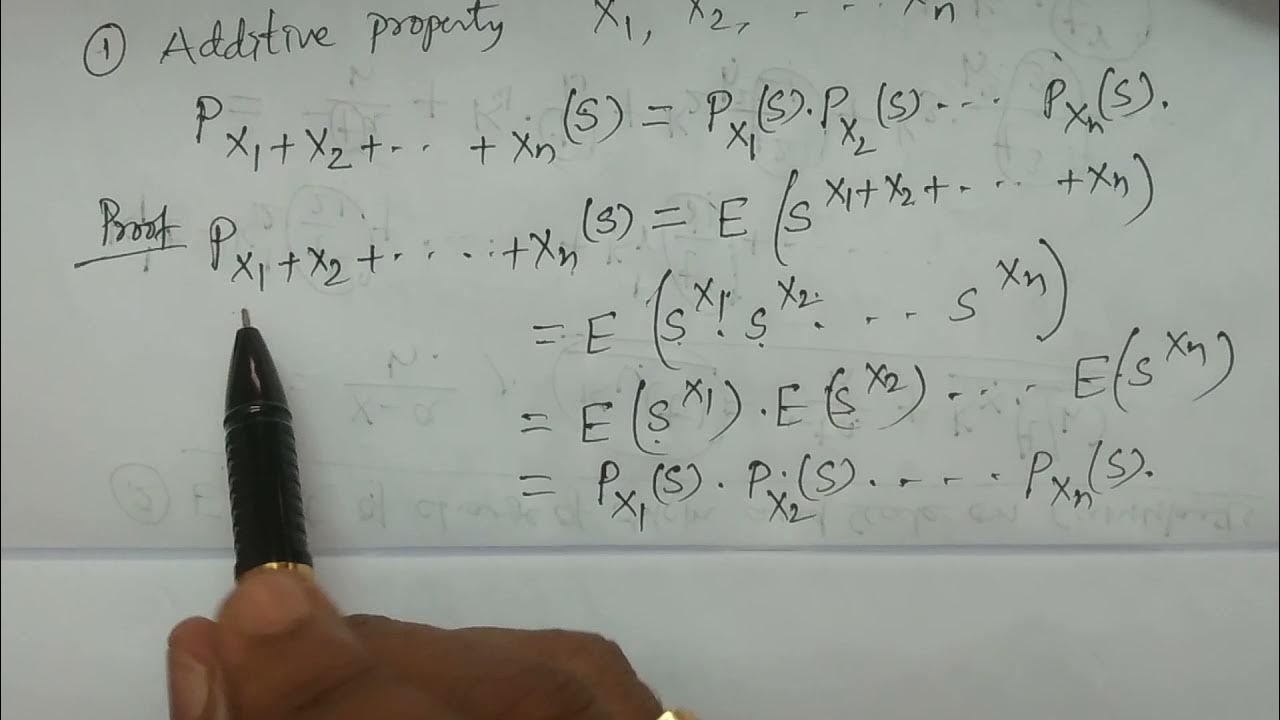 ① Additive property X₁, X₂, . . . Xₙ
P_{X₁+X₂+. . . +Xₙ}(S) = P_{X₁}(S).P_{X₂}(S). . . . P_{Xₙ}(S).
Proof P_{X₁+X₂+. . . . .+Xₙ}(S) = E(S^{X₁+X₂+. . . . +Xₙ})
= E(S^{X₁}.S^{X₂}. . . . S^{Xₙ})
= E(S^{X₁}).E(S^{X₂}). . . . E(S^{Xₙ})
= P_{X₁}(S). P_{X₂}(S). . . . . P_{Xₙ}(S).